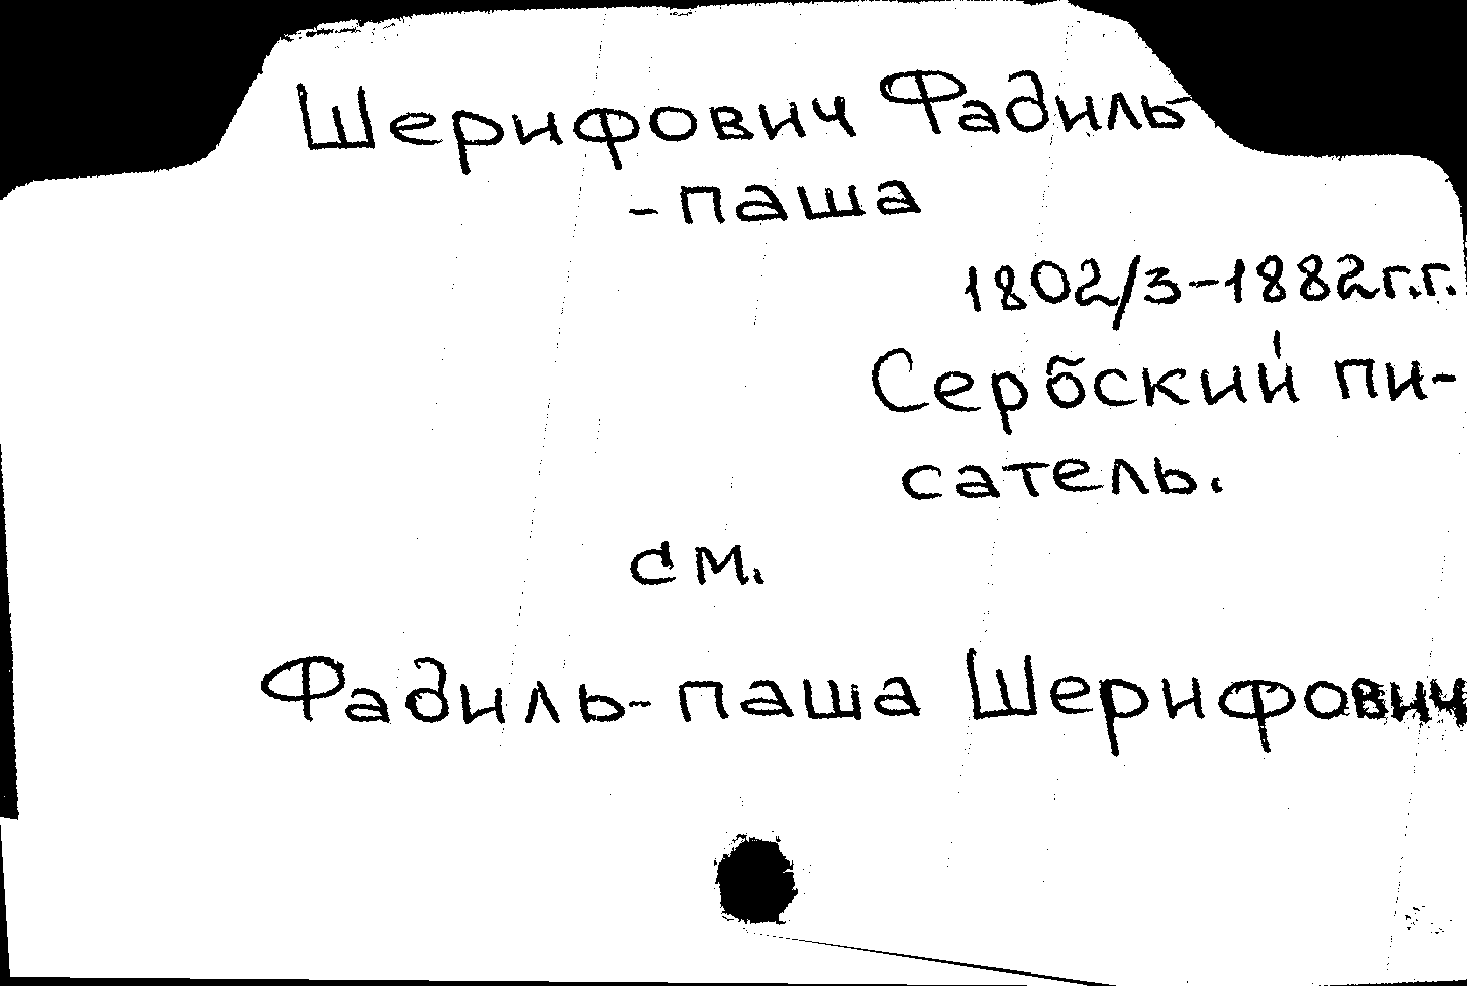 Шерифович Фадиль-
-паша
1802/3-1882г.г.
Сербский пи-
сатель.
см.
Фадиль-паша Шерифович